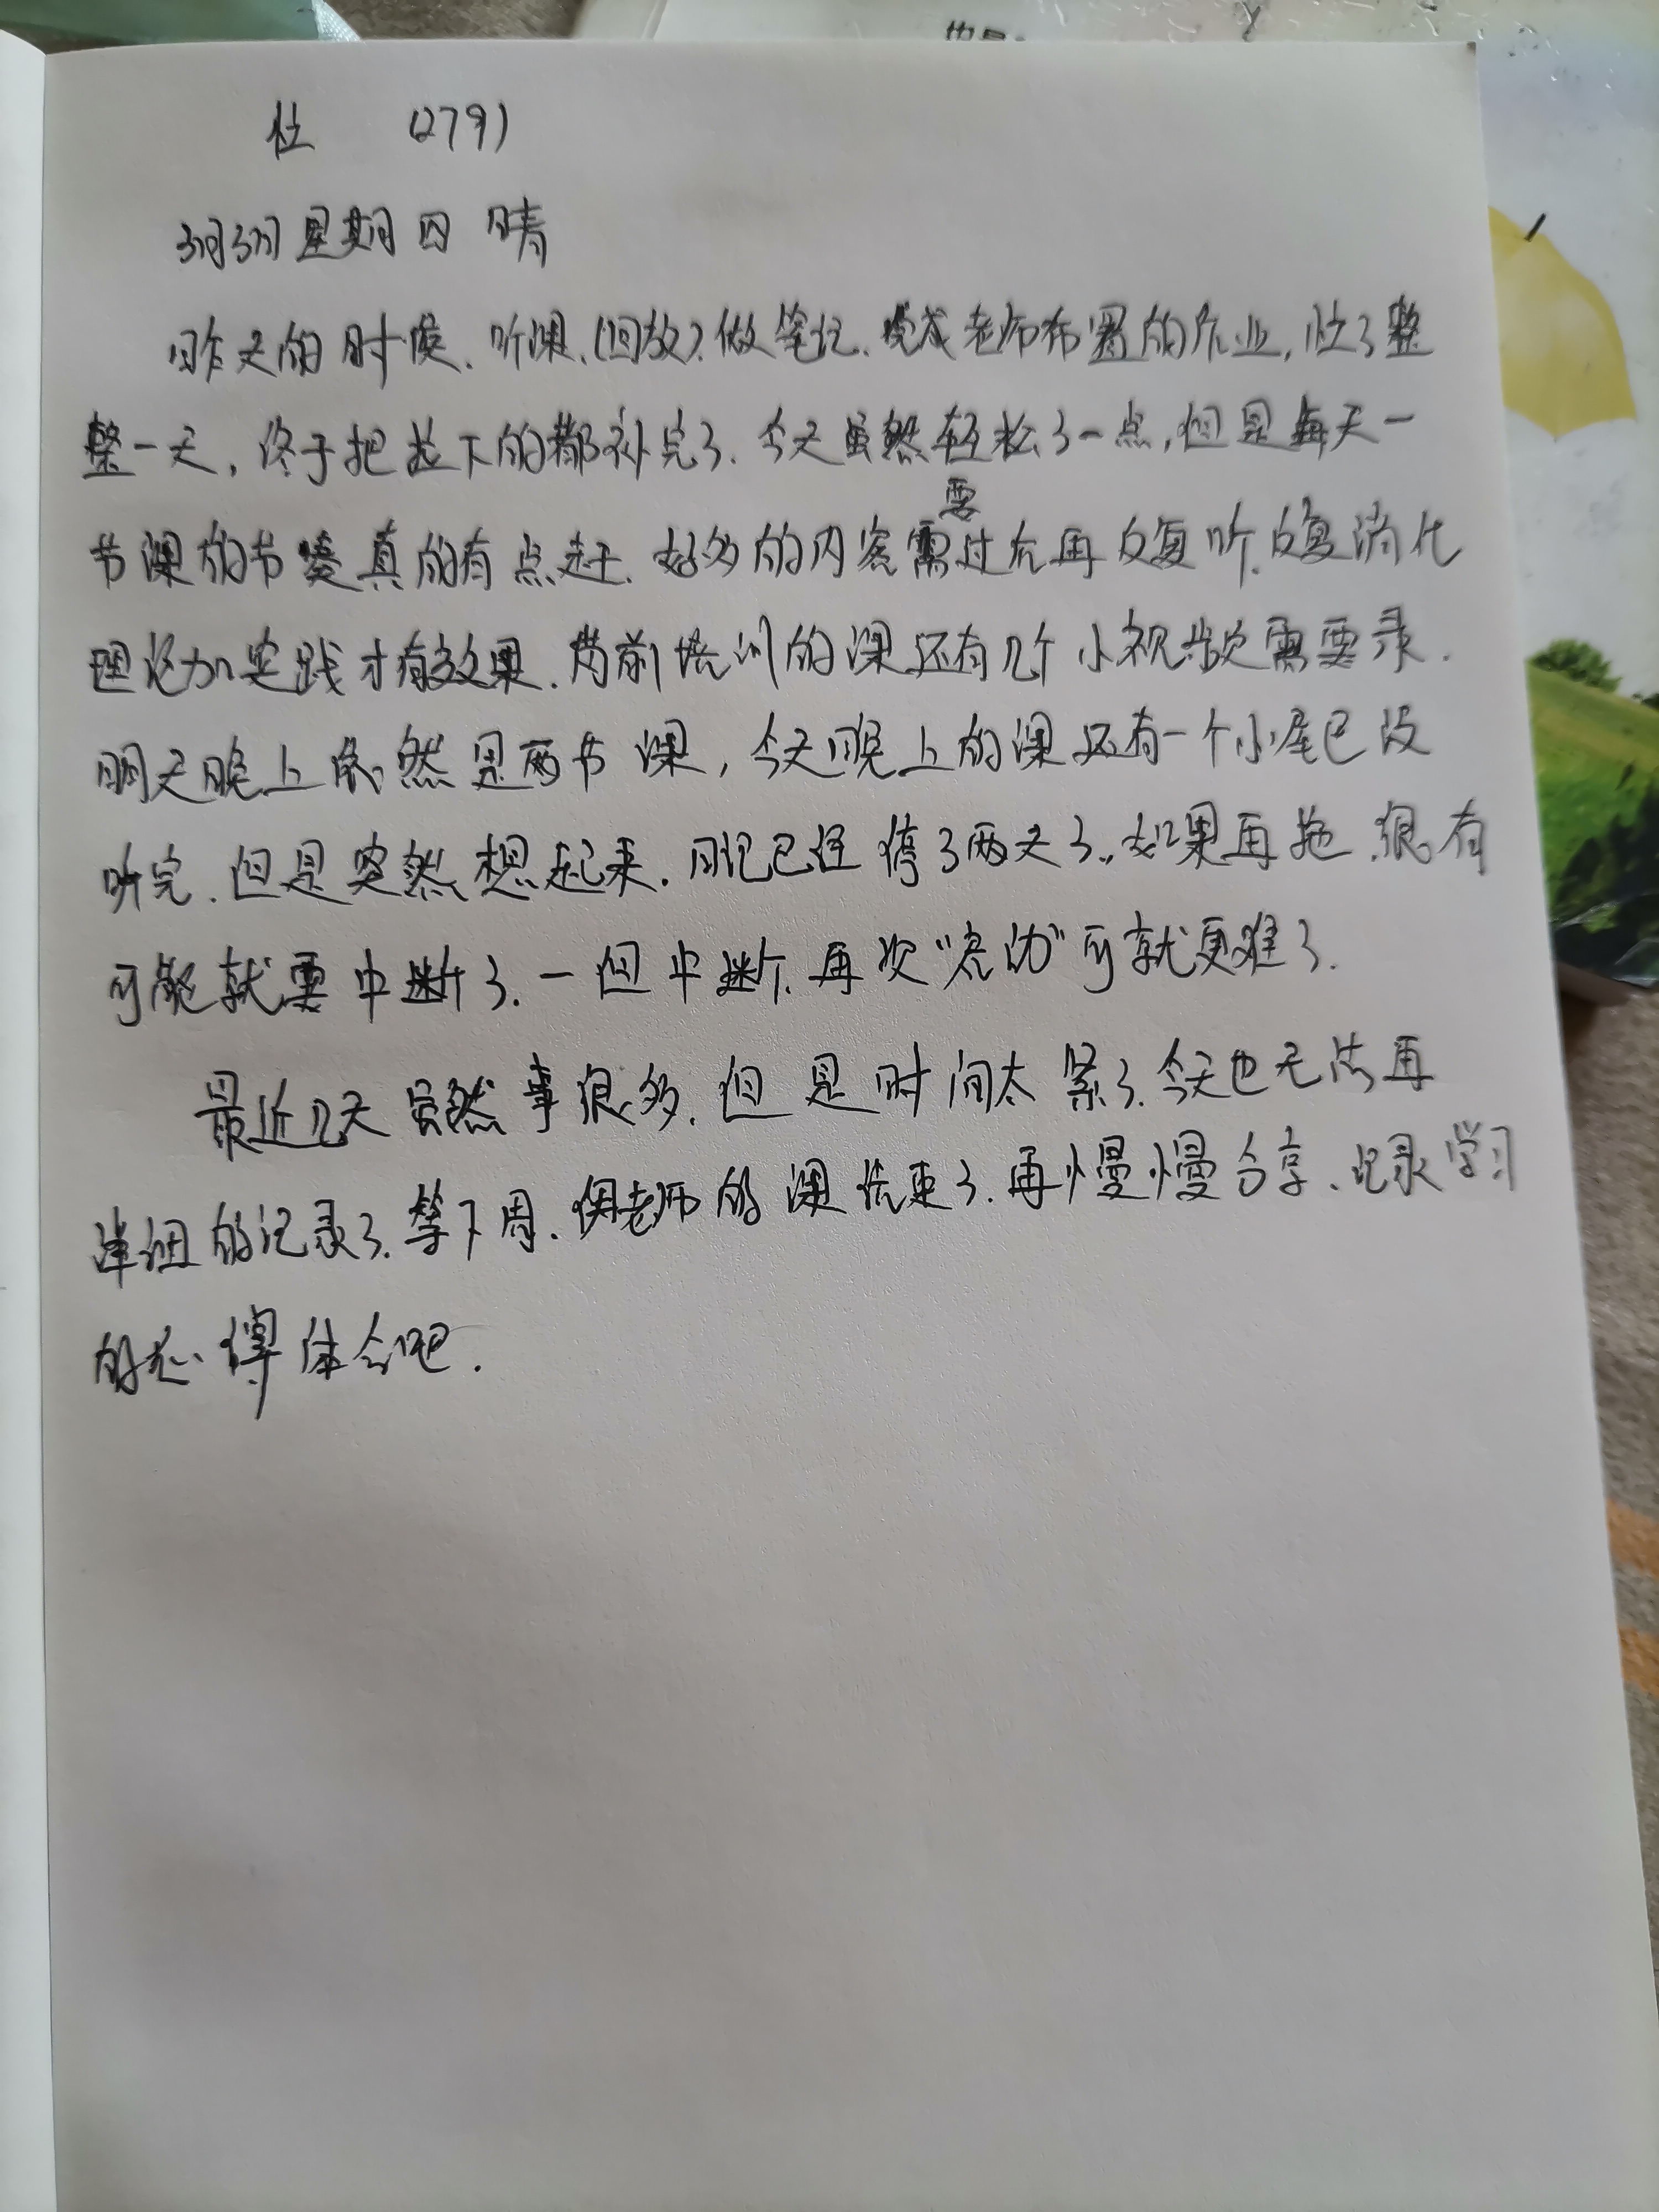 也是
忙 (279)
3月3日 星期四 晴
昨天的时候、听课、(回放)、做笔记、完成老师布置的作业,忙了整
整一天,终于把拉下的都补完了.今天虽然轻松了一点,但是每天一
节课的节奏真的有点赶.好多的内容需要过后再反复听.反复消化
理论加实践才有效果.岗前培训的课还有几个小视频需要录.
明天晚上依然是两节课,今天晚上的课还有一个小尾巴没
听完.但是突然想起来.日记已经停了两天了..如果再拖.很有
可能就要中断了.一但中断.再次“启动”可就更难了.
最近几天虽然事很多.但是时间太紧了.今天也无法再
详细的记录了.等下周.侯老师的课结束了.再慢慢分享、记录学习
的心得体会吧.